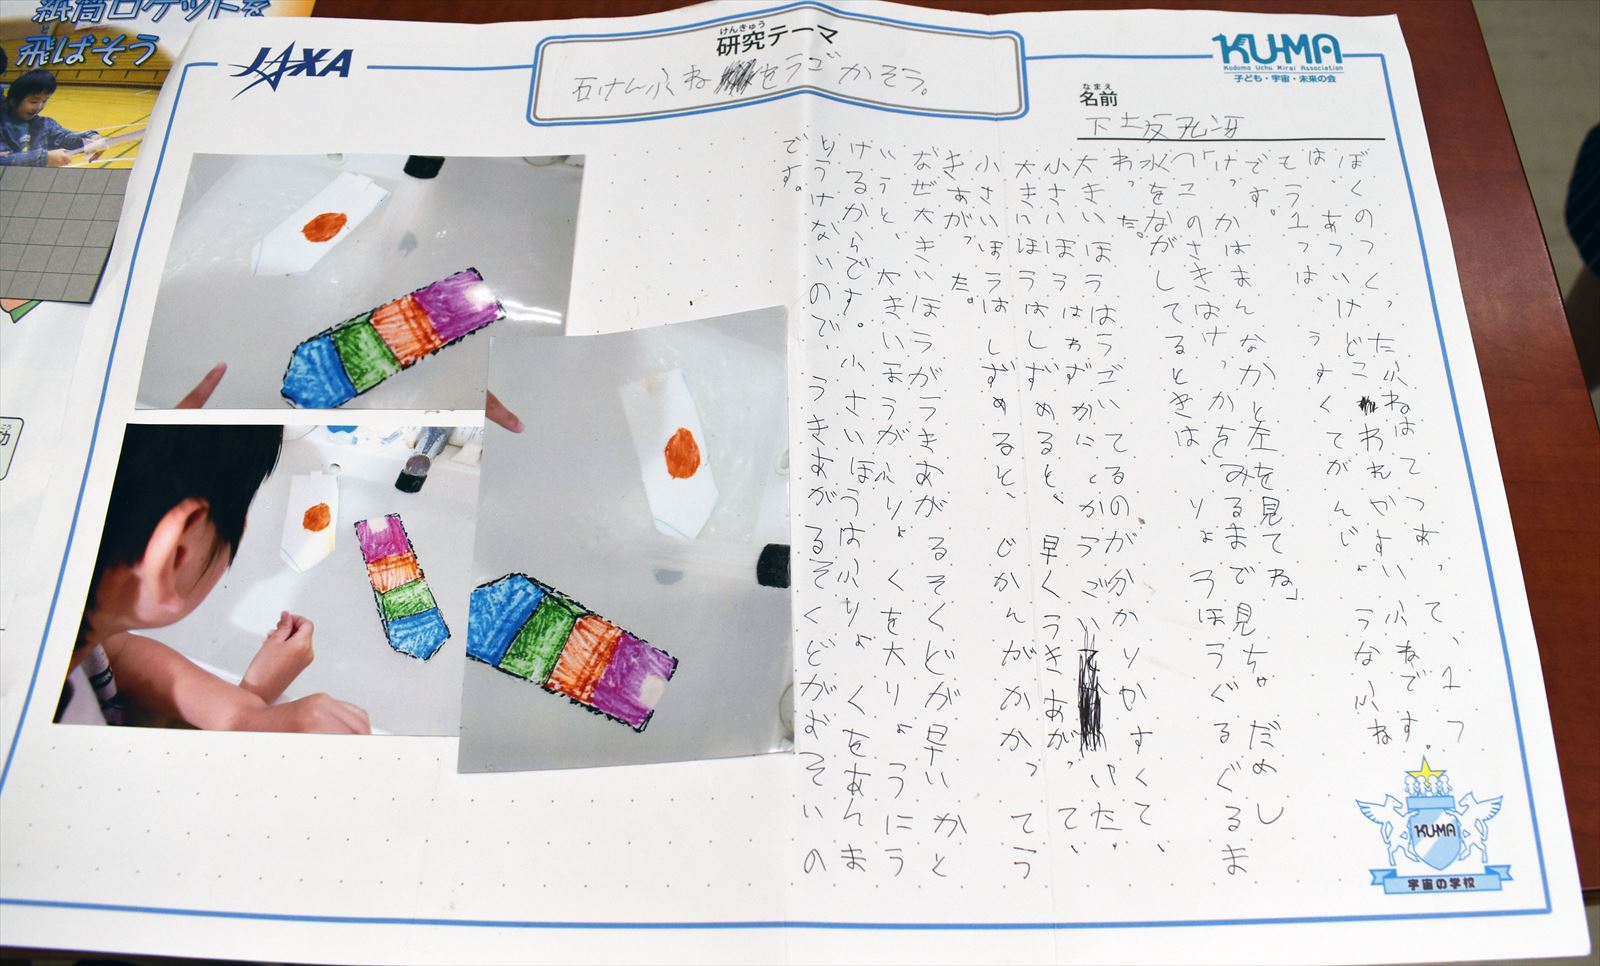 紙筒ロケットを
飛ばそう
JAXA
けんきゅう
研究テーマ
石けんふねをうごかそう。
KU-MA
Kodomo Uchu Mirai Association
子ども・宇宙・未来の会
なまえ
名前
ぼくのつくったふねは2つあって、1つ
は、あついけどこわれやすいふねです。
もう1つは、うすくてがんじょうなふね
です。
けっかはまんなかと左を見てね」
のさきはけっかをみるまで見ちゃだめ
水をながしてるときは、りょうほうぐるぐるま
わった。
大きいほうはうごいてるのが分かりやすくて、
小さいほうはわずかにしかうごいていた。
大きいほうはしずめると、早くうきあがって、
小さいほうはしずめると、じかんがかかってう
きあがった。
なぜ大きいほうがうきあがるそくどが早いかと
いうと、大きいほうがふりょくを大りょうにう
けるからです。小さいほうはふりょくをあんま
りうけないので、うきあがるそくどがおそいの
です。
KU-MA
宇宙の学校